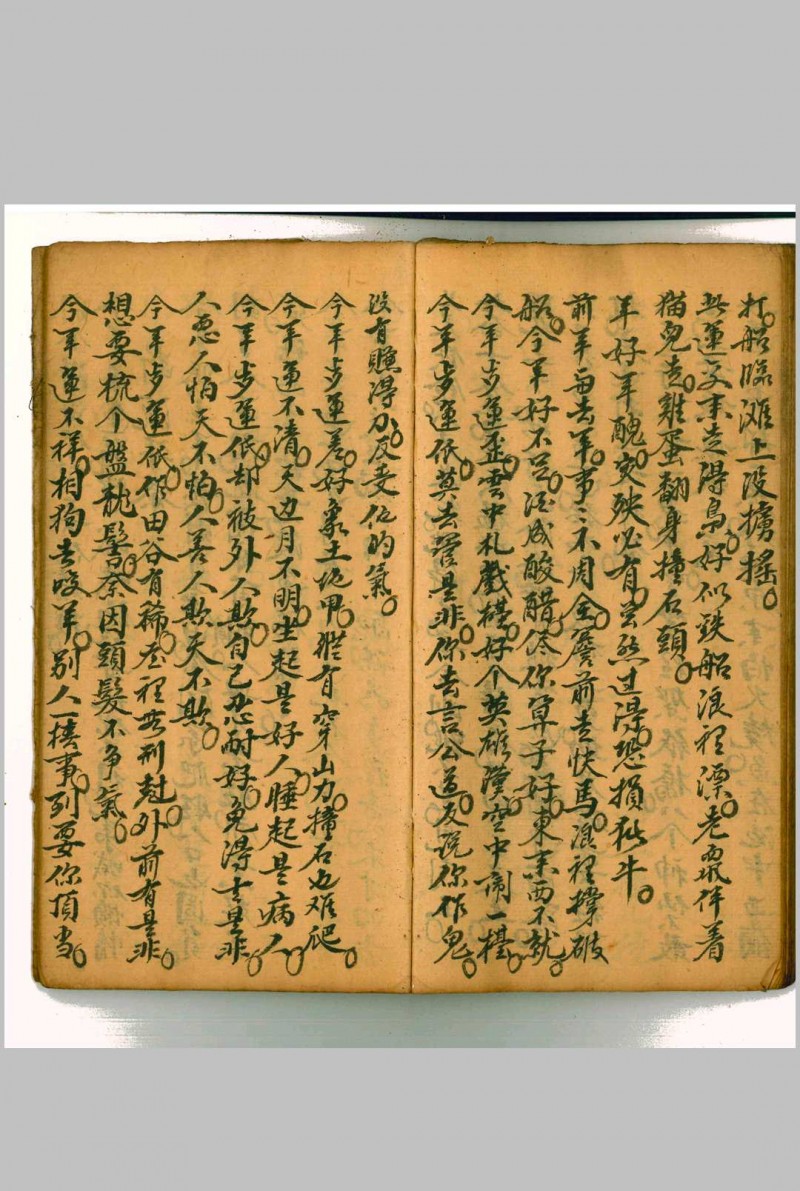 打船臨滩上没擄摇
此運交来走得高好似鉄船浪裡漂老鼠伴着
猫兒走雞蛋翻身撞石頭
年好年醜灾殃必有忽然过得恐損猪牛
前年每去年事〻不周全簷前走快馬浪裡撐破
船今年好不足酒成酸醋侭你算子好東来西不就
今年步運歪雲中扎戲檯好个英雄漢空中鬧一檯
今年步運低莫去管是非你去言公道反説你作鬼
没有賺得力反受化的氣
今年步運差好象土地甲雖有穿山力撞石也难爬
今年運不清天边月不明坐起是好人睡起是病人
今年步運低却被外人欺自己忍耐好免得士是非
人恶人怕天不怕人善人欺天不欺
今年步運低作田谷有稀屋裡無刑尅外前有是非
想要梳个盤龍髻奈因頭髮不争氣
今年運不祥相狗去咬羊别人一樁事到要你頂当